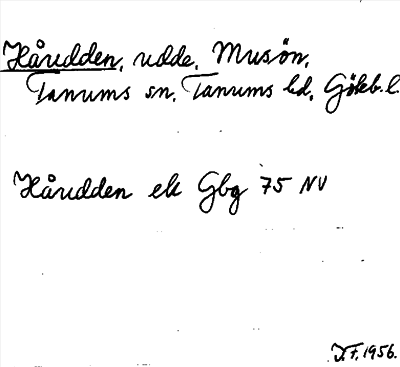 Håudden, udde, Musön,
Tanums sn, Tanums hd, Göteb. l.
Håudden ek Gbg 75 NV
J.F. 1956.